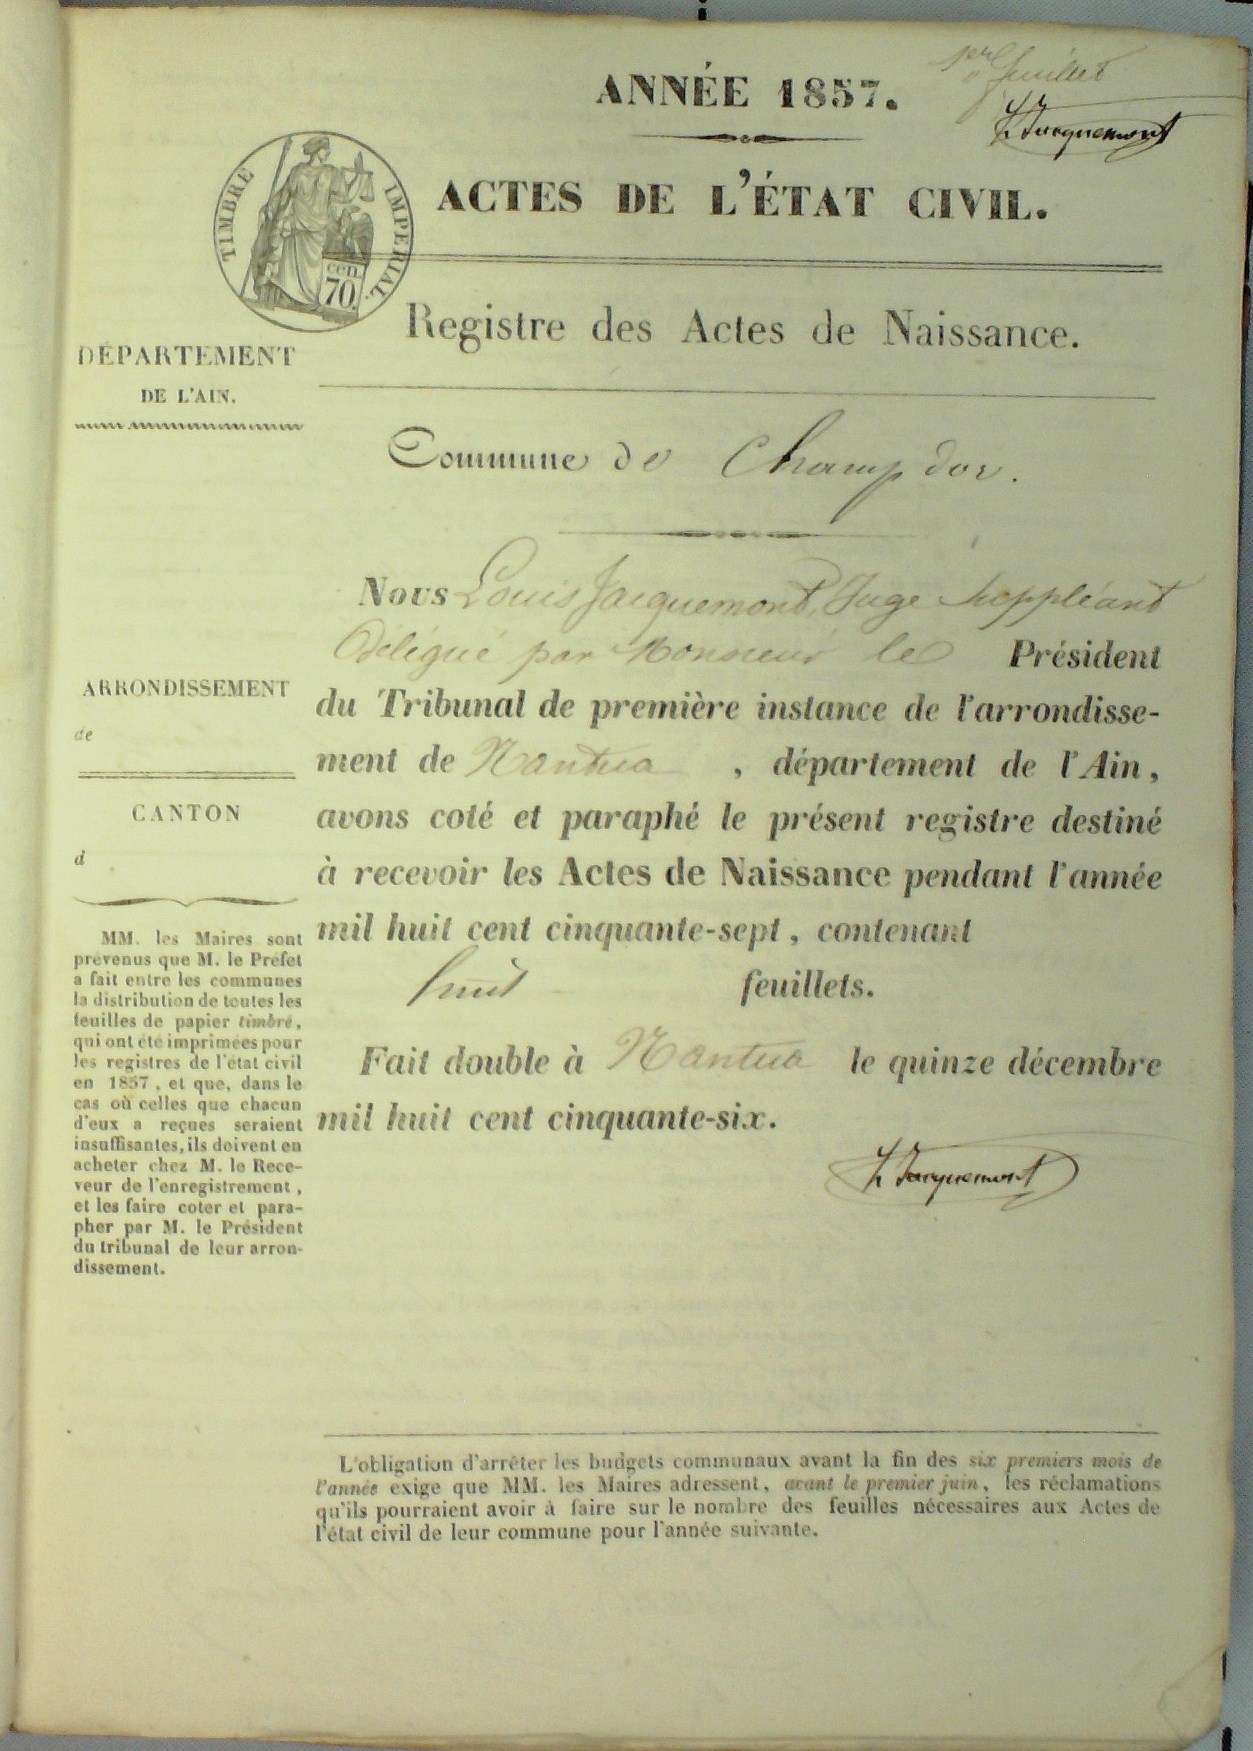 1er feuillet
L. Jacquemont
ANNÉE 1857.
ACTES DE L'ÉTAT CIVIL.
TIMBRE IMPERIAL.
cen.
70.
Registre des Actes de Naissance.
DÉPARTEMENT
DE L'AIN.
Commune de Champdor.
Nous Louis Jacquemont, Juge Suppléant
Délégué par Monsieur le Président
du Tribunal de première instance de l'arrondisse-
ment de Nantua, département de l'Ain,
avons coté et paraphé le présent registre destiné
à recevoir les Actes de Naissance pendant l'année
mil huit cent cinquante-sept, contenant
huit feuillets.
Fait double à Nantua le quinze décembre
mil huit cent cinquante-six.
L. Jacquemont
ARRONDISSEMENT
de
CANTON
d
MM. les Maires sont
prévenus que M. le Préfet
a fait entre les communes
la distribution de toutes les
feuilles de papier timbré,
qui ont été imprimées pour
les registres de l'état civil
en 1857, et que, dans le
cas où celles que chacun
d'eux a reçues seraient
insuffisantes, ils doivent en
acheter chez M. le Rece-
veur de l'enregistrement,
et les faire coter et para-
pher par M. le Président
du tribunal de leur arron-
dissement.
L'obligation d'arrêter les budgets communaux avant la fin des six premiers mois de
l'année exige que MM. les Maires adressent, avant le premier juin, les réclamations
qu'ils pourraient avoir à faire sur le nombre des feuilles nécessaires aux Actes de
l'état civil de leur commune pour l'année suivante.